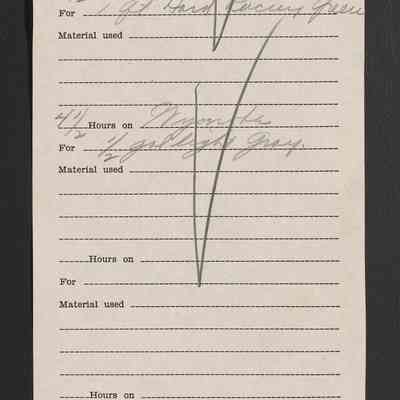 For 1 qt Dark Racing Green
Material used
4 1/2 Hours on
For 1/2 gal light Gray.
Material used
Hours on
For
Material used
Hours on